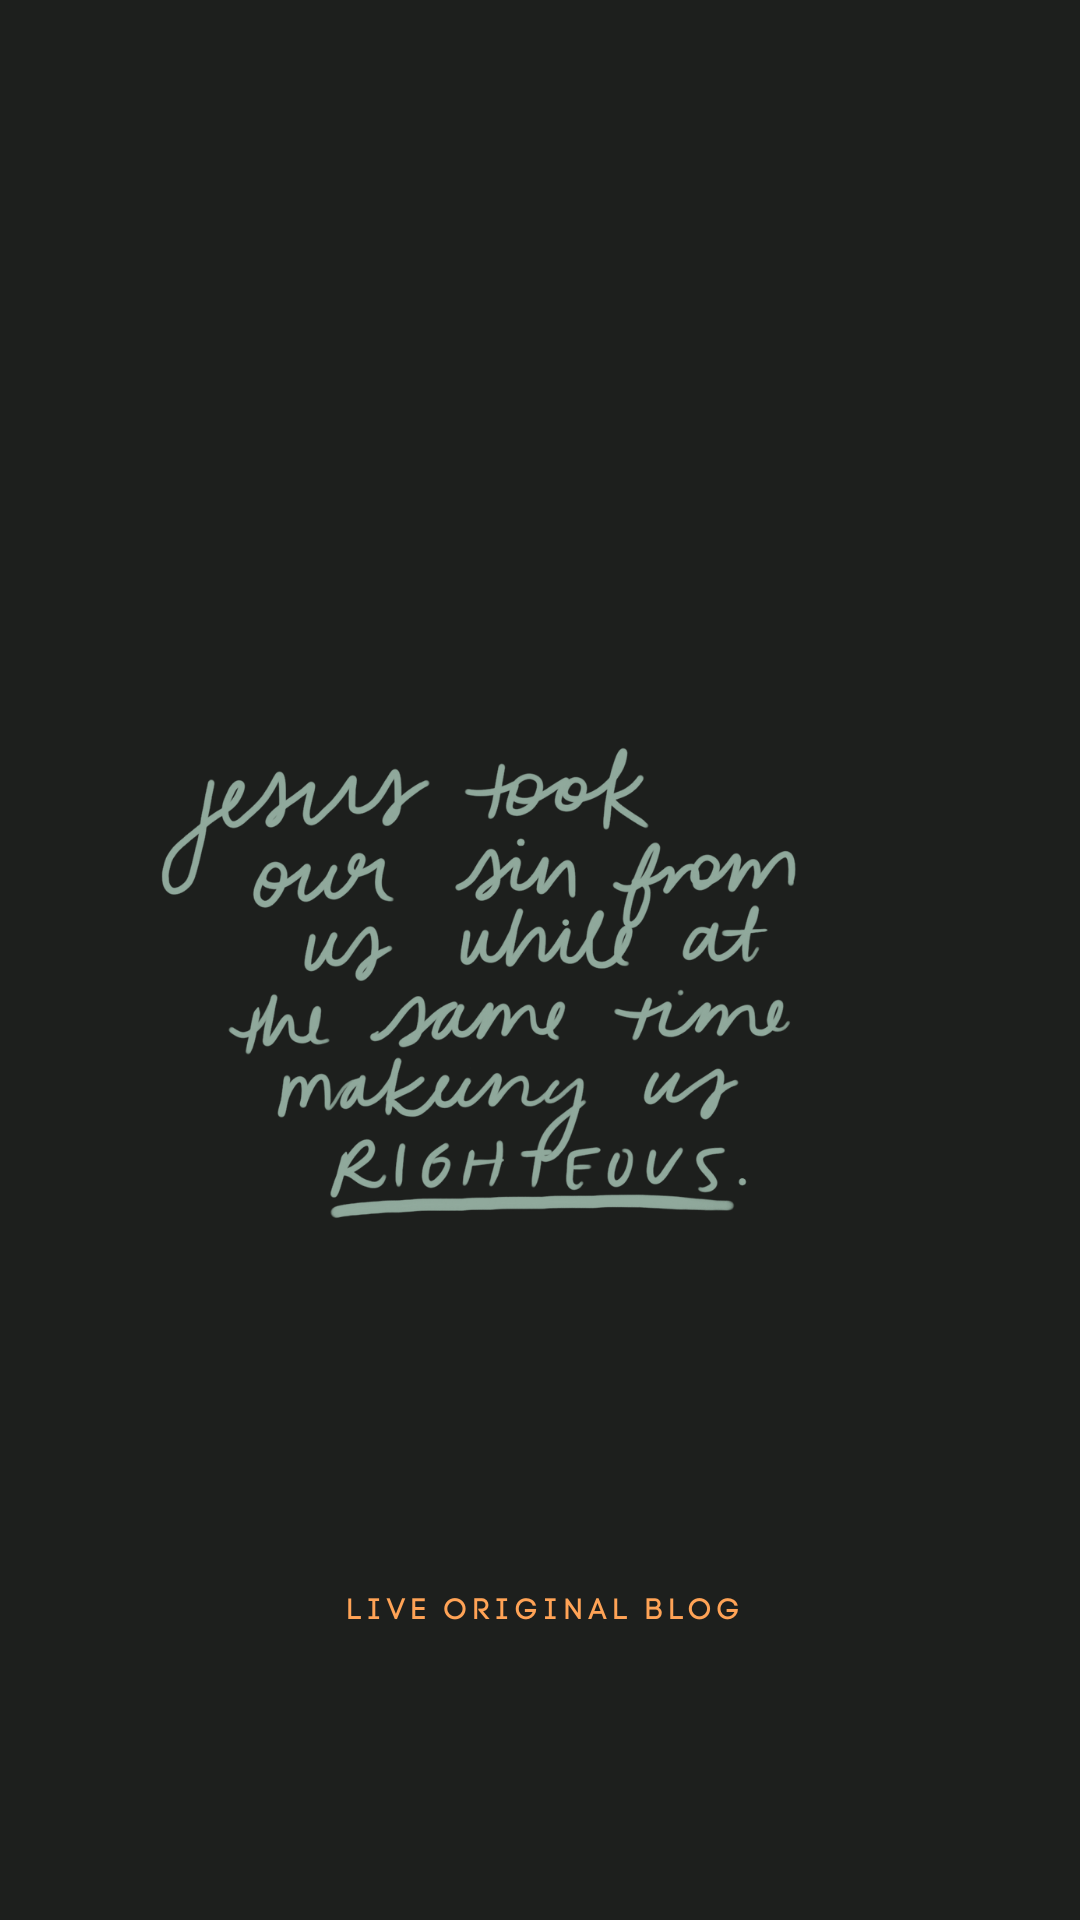 jesus took
our sin from
us while at
the same time
making us
RIGHTEOUS.
LIVE ORIGINAL BLOG